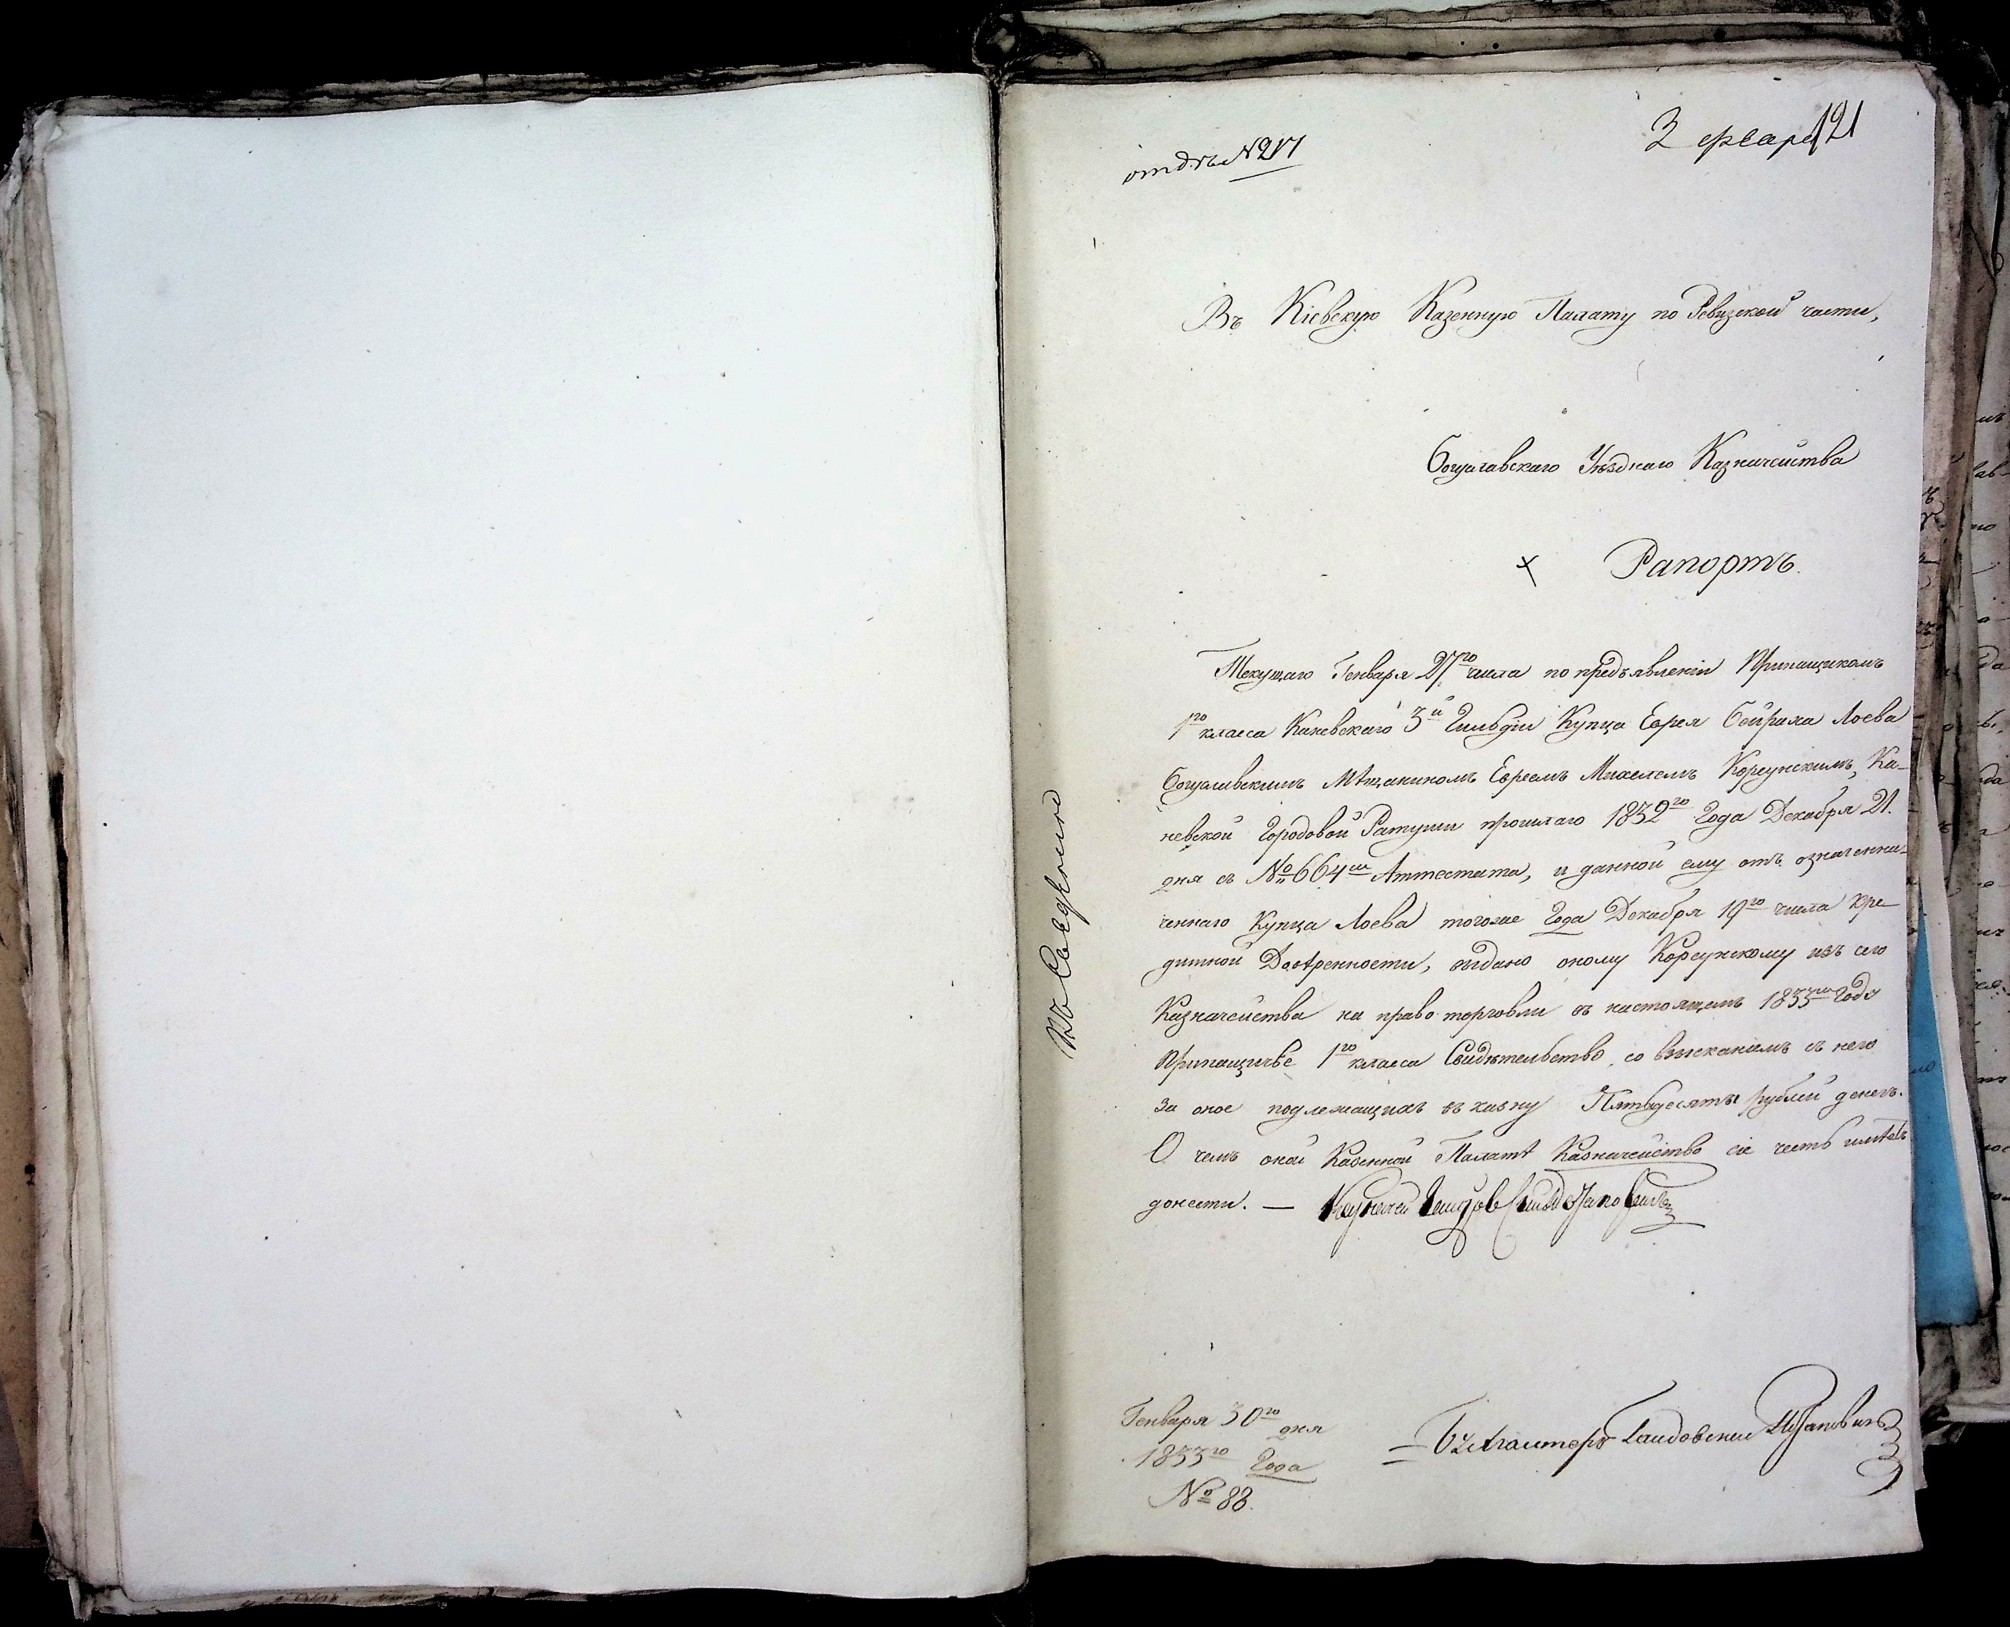 отдѣ №217
3 февра
121
Въ Кіевскую Казенную Палату по Ревизской части,
Богуславскаго Уѣзднаго Казначейства
Рапортъ.
Текущаго Генваря 27го числа по предъявленіи Прикащикомъ
1го класса Каневскаго 3й Гильдіи Купца Еврея Лоева
Богуславскимъ Мѣщаниномъ Евреемъ Михелемъ Корсунскимъ, Ка-
невской Городовой Ратуши прошлаго 1832го Года Декабря 21.
дня съ №664м Аттестата, и данной ему отъ означенни-
ченнаго Купца Лоева тогоже Года Декабря 19го числа кре
дитной Довѣренности, выдано оному Корсунскому изъ сего
Казначейства на право торговли въ настоящемъ 1833мъ Году
Прикащичье 1го класса Свидѣтельство, со взысканіемъ съ него
за оное подлежащихъ въ казну Пятьдесятъ рублей денегъ.
О чемъ оной Казенной Палатѣ Казначейство сіе честь имѣетъ
донести. — Казначей
Къ Сведению
Генваря 30го дня
1833го Года
№ 83.
Бухгалтеръ